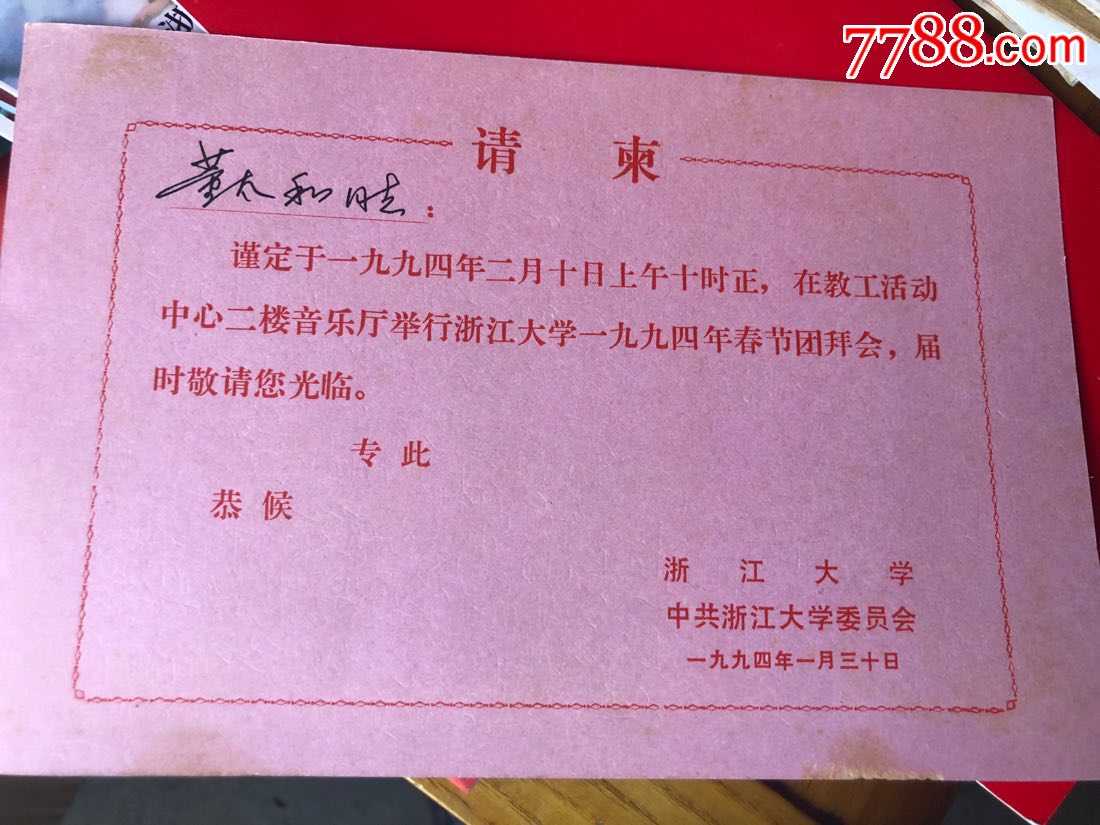 7788.com
请柬
董太和同志：
谨定于一九九四年二月十日上午十时正，在教工活动
中心二楼音乐厅举行浙江大学一九九四年春节团拜会，届
时敬请您光临。
专此
恭候
浙江大学
中共浙江大学委员会
一九九四年一月三十日